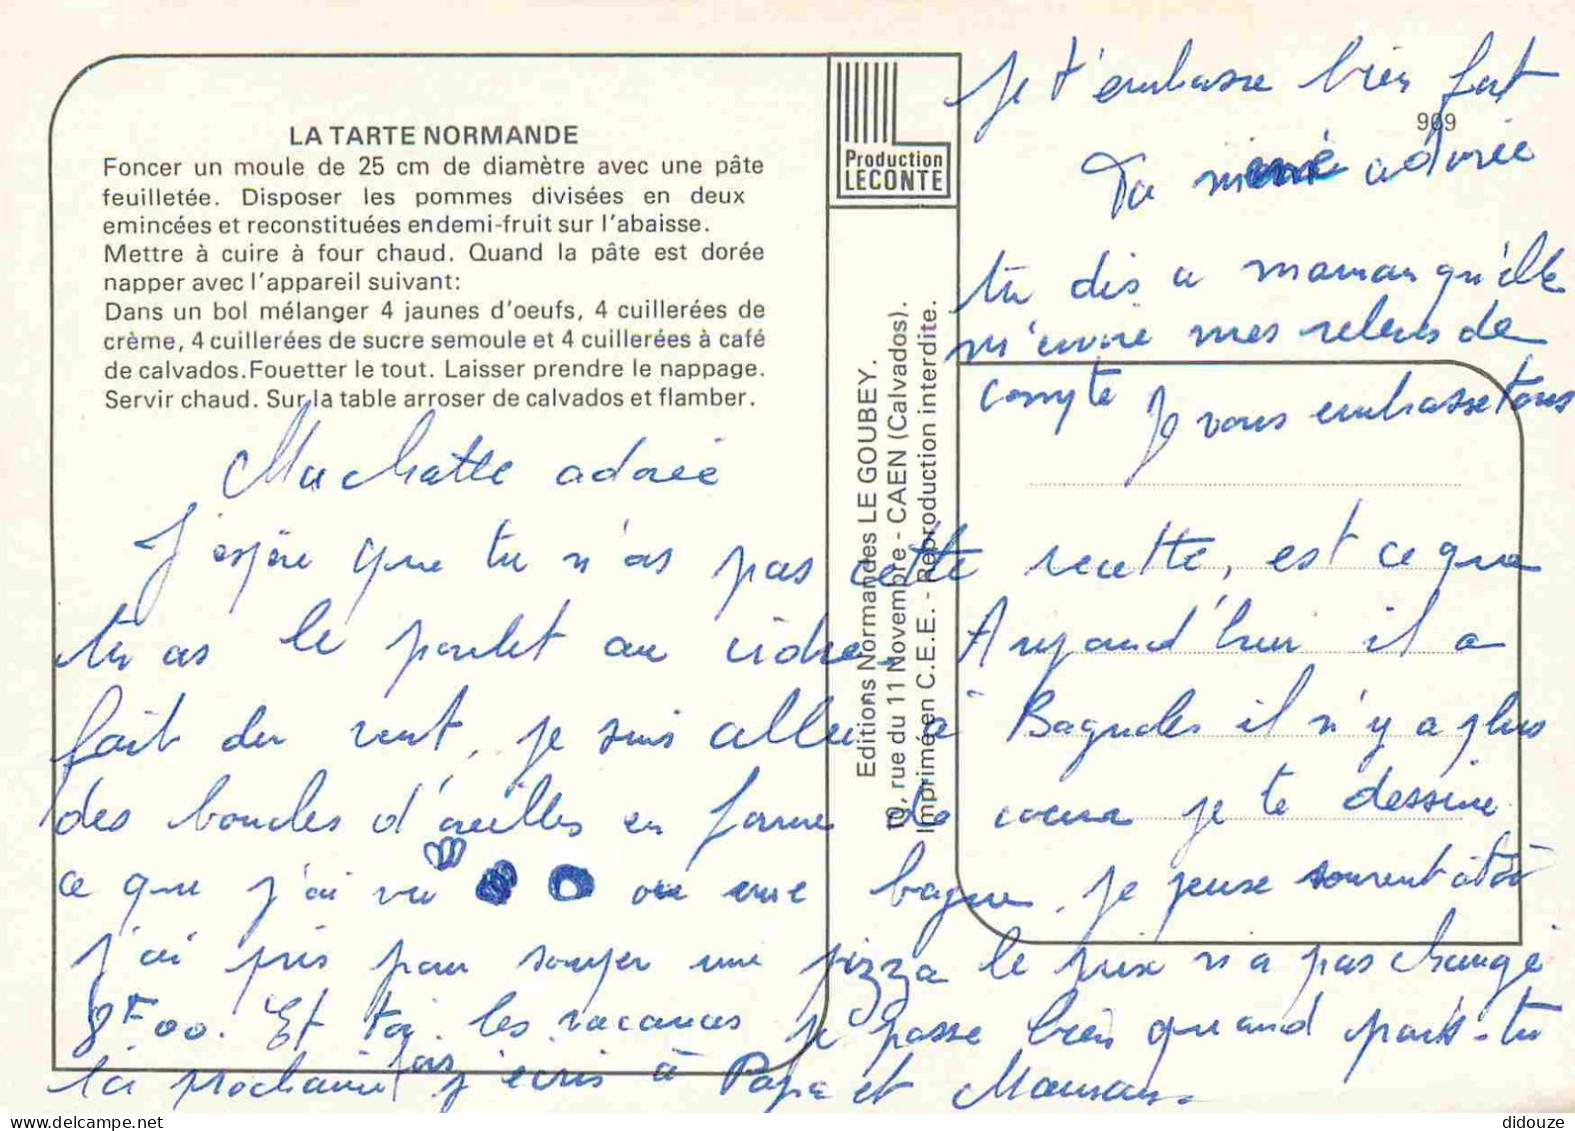 LA TARTE NORMANDE
Foncer un moule de 25 cm de diamètre avec une pâte
feuilletée. Disposer les pommes divisées en deux
emincées et reconstituées en demi-fruit sur l'abaisse.
Mettre à cuire à four chaud. Quand la pâte est dorée
napper avec l'appareil suivant:
Dans un bol mélanger 4 jaunes d'oeufs, 4 cuillerées de
crème, 4 cuillerées de sucre semoule et 4 cuillerées à café
de calvados. Fouetter le tout. Laisser prendre le nappage.
Servir chaud. Sur la table arroser de calvados et flamber.
Production
LECONTE
Editions Normandes LE GOUBEY.
19, rue du 11 Novembre - CAEN (Calvados).
Imprimé en C.E.E. - Reproduction interdite.
969
Ma chatte adorée
J'espère que tu n'as pas cette recette, est ce que
tu as le poulet au cidre. Aujourd'hui il a
fait du vent, je suis allée à Bagnoles il n'y a plus
des boucles d'oreilles en forme de coeur je te dessine
ce que j'ai vu ou une bague. Je pense souvent à toi
j'ai pris pour souper une pizza le prix n'a pas changé
8F00. Et toi les vacances je passe bien quand pars-tu
la prochaine fois j'écris à Papa et Maman.
Je t'embrasse bien fort
Ta adorée
tu dis a maman qu'elle
m'envoie mes relevés de
compte Je vous embrasse tous
didouze